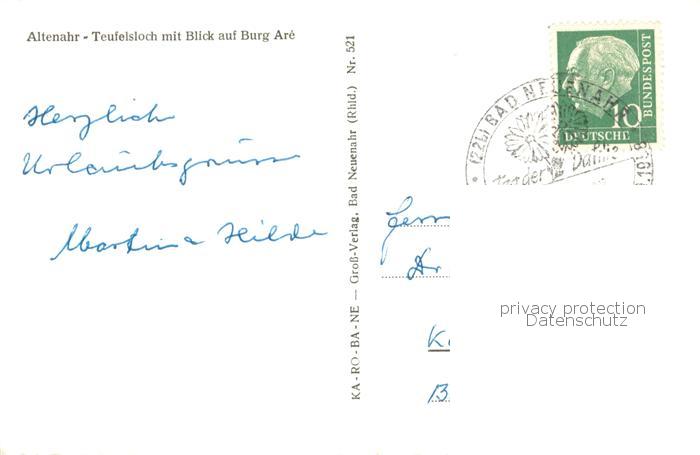 Altenahr - Teufelsloch mit Blick auf Burg Aré
Herzliche
Urlaubsgrüsse
Martin + Hilde
KA - RO - BA - NE — Groß-Verlag, Bad Neuenahr (Rhld.) Nr. 521
DEUTSCHE
BUNDESPOST
10
(22b) BAD NEUENAHR
Herrn
Dr
K
B
privacy protection
Datenschutz